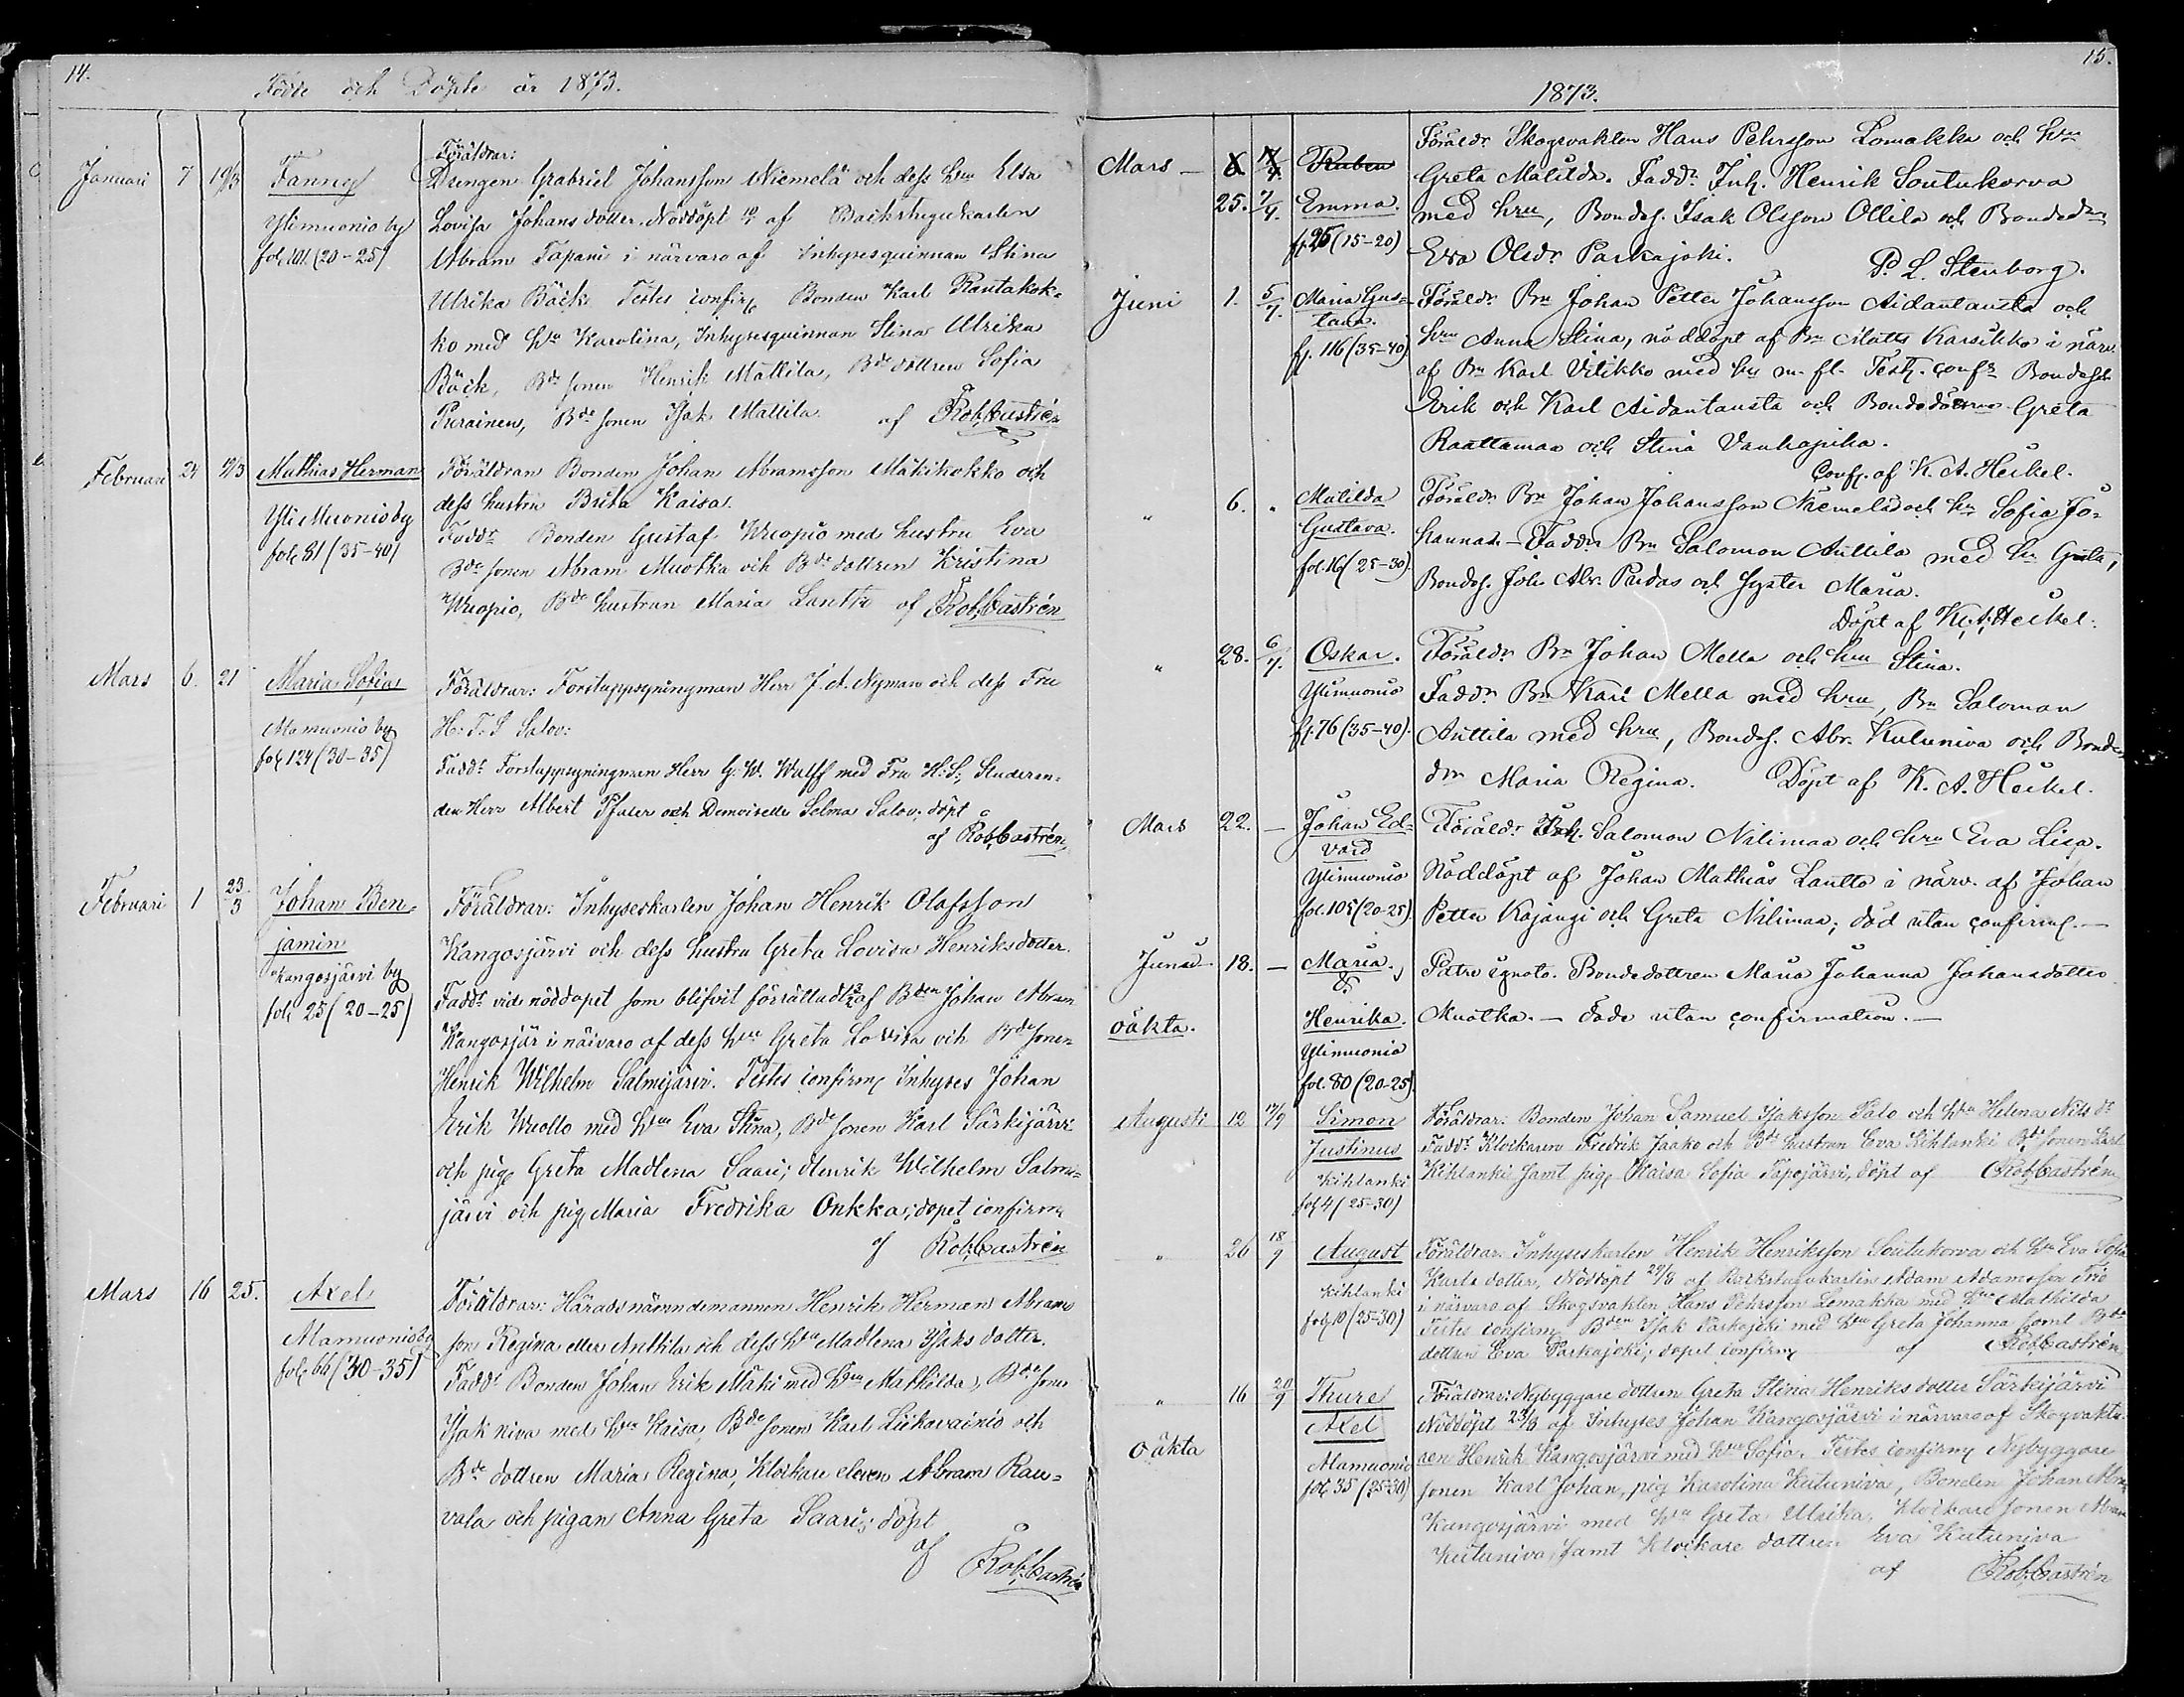 14.
Födde och Döpte år 1873.
Januari 7 19/3 Fanny
Ylimuonio by
fol. 101 (20-25)
Föräldrar:
Drengen Gabriel Johansson Niemelä och dess hru Elsa
Lovisa Johans dotter. Nöddöpt af Backstugukarlen
Abram Tapani i närvaro af Inhysesquinnan Stina
Ulrika Bäck. Testes confirm Bonden Karl Rautakok-
ko med hru Karolina, Inhysesquinnan Stina Ulrika
Bäck, Bde sonen Henrik Mattila, Bde dottren Sofia
Purainen, Bde sonen Isak Mattila af Rob. Castrén
Februari 24 19/3 Mathias Herman
Yli Muonio by
fol. 81 (35-40)
Föräldran Bonden Johan Abramsson Mäkikokko och
dess hustru Brita Kaisa.
Fadd: Bonden Gustaf Wuopio med hustru Eva
Bde sonen Abram Muotka och Bde dottren Kristina
Wuopio, Bde hustrun Maria Lantto af Rob. Castrén
Mars 6. 21 Maria Sofia
Alamuonio by
fol. 124 (30-35)
Föräldrar: Forstuppsyningman Herr J. A. Nyman och dess Fru
H. T. S Salov:
Fadd: Forstuppsyningman Herr G. W. Wulff med Fru H. S; Studeran-
den Herr Albert Pfaler och Demoiselle Selma Salov; döpt
af Rob. Castrén
Februari 1 23/3 Johan Ben-
jamin
Kangosjärvi by
fol. 25 (20-25)
Föräldrar: Inhyseskarlen Johan Henrik Olofsson
Kangosjärvi och dess hustru Greta Lovisa Henriksdotter.
Fadd: vid nöddopet som blifvit förrättadt af Bden Johan Abram
Kangosjär i närvaro af dess hru Greta Lovisa och Bde sonen
Henrik Wilhelm Salmijärvi. Testes confirm Inhyses Johan
Erik Wuollo med hru Eva Stina, Bde sonen Karl Särkijärvi
och pig. Greta Madlena Saari; Henrik Wilhelm Salmi-
järvi och pig. Maria Fredrika Onkka; dopet confirm
af Rob. Castrén
Mars 16 25. Axel
Alamuonio by
fol. 66 (30-35)
Föräldrar: Häradsnämndemannen Henrik Herman Abrams
son Regina eller Anttila och dess hru Madlena Isaks dotter.
Fadd: Bonden Johan Erik Mäki med hru Mathilda, Bde sonen
Isak Niva med hru Kaisa, Bde sonen Karl Liikavainio och
Bde dottren Maria Regina, Klockare eleven Abram Rau-
vala och pigan Anna Greta Saari; döpt
af Rob. Castrén
15.
1873.
Mars - 6 Ruben
25. 7/4. Emma.
f. 26 (15-20)
Föräldr. Skogsvakten Hans Pehrsson Lomakka och hru
Greta Matilda. Fadd: Inh. Henrik Soutukorva
med hru, Bondes. Isak Olsson Ollila och Bondedn
Eva Olsdr Parkajoki. P. L. Stenborg.
Juni 1. 5/7. Maria Gus-
tava.
f. 116 (35-40)
Föräldr. Bn Johan Petter Johansson Aidantausta och
hru Anna Stina, nöddöpt af Bn Matts Karsikko i närv.
af Bn Karl Vilikko med hru m. fl. Test. conf: Bondes.
Erik och Karl Aidantausta och Bondedöttrar Greta
Raattamaa och Stina Vanhapiha.
Conf. af K. A. Heikel.
" 6. " Matilda
Gustava.
fol. 16 (25-30).
Föräldr. Bn Johan Johansson Niemelä och hru Sofia Jo-
hannadr. - Faddr Bn Salomon Anttila med hru Greta,
Bondes. Joh. Abr. Pudas och syster Maria.
Döpt af K. A. Heikel.
" 28. 6/7. Oskar.
Ylimuonio
f. 76 (35-40).
Föräldr. Bn Johan Mella och hru Stina.
Faddr Bn Karl Mella med hru, Bn Salomon
Anttila med hru, Bondes. Abr. Kutuniva och Bonde-
dn Maria Regina. Döpt af K. A. Heikel.
Mars 22. - Johan Ed-
vard
Ylimuonio
fol. 105 (20-25).
Föräldr. Inh. Salomon Nilimaa och hru Eva Lisa.
Nöddöpt af Johan Mathias Lantto i närv. af Johan
Petter Kojangi och Greta Nilimaa; död utan confirm. -
Junii 18. - Maria.
&
oäkta. Henrika.
Ylimuonio
fol. 80 (20-25)
Patre ignoto. Bondedottren Maria Johanna Johansdotter
Muotka. - Döde utan confirmation. -
Augusti 12 17/9 Simon
Justinus
Kihlanki
fol. 4 (25-30)
Föräldrar: Bonden Johan Samuel Isaksson Palo och hru Helena Nils dr
Fadd: Klockaren Fredrik Jaako och Bde hustrun Eva Kihlanki Bde sonen Karl
Kihlanki samt pig. Kaisa Sofia Tapojärvi, döpt af Rob. Castrén
" 26 18/9 August
Kihlanki
fol. 10 (25-30)
Föräldrar: Inhyseskarlen Henrik Henriksson Soutukorva och hru Eva Sofia
Karls dotter, Nöddöpt 29/8 af Backstugukarlen Adam Adamsson Fiio
i närvaro af Skogsvakten Hans Pehrsson Lomakka med hru Mathilda
Testes confirm Bden Isak Parkajoki med hru Greta Johanna samt Bde
dottren Eva Parkajoki; dopet confirm af Rob. Castrén
" 16 20/9 Thure
Axel
oäkta Alamuonio
fol. 35 (25-30)
Föräldrar: Nybyggare dottren Greta Stina Henriks dotter Särkijärvi
Nöddöpt 23/8 af Inhyses Johan Kangosjärvi i närvaro af Skogvakta-
ren Henrik Kangosjärvi med hru Sofia. Testes confirm Nybyggare
sonen Karl Johan, pig. Karolina Kutuniva, Bonden Johan Abra.
Kangosjärvi med hru Greta Ulrika, Klockare sonen Abram
Kutuniva, samt Klockare dottren Eva Kutuniva
af Rob. Castrén